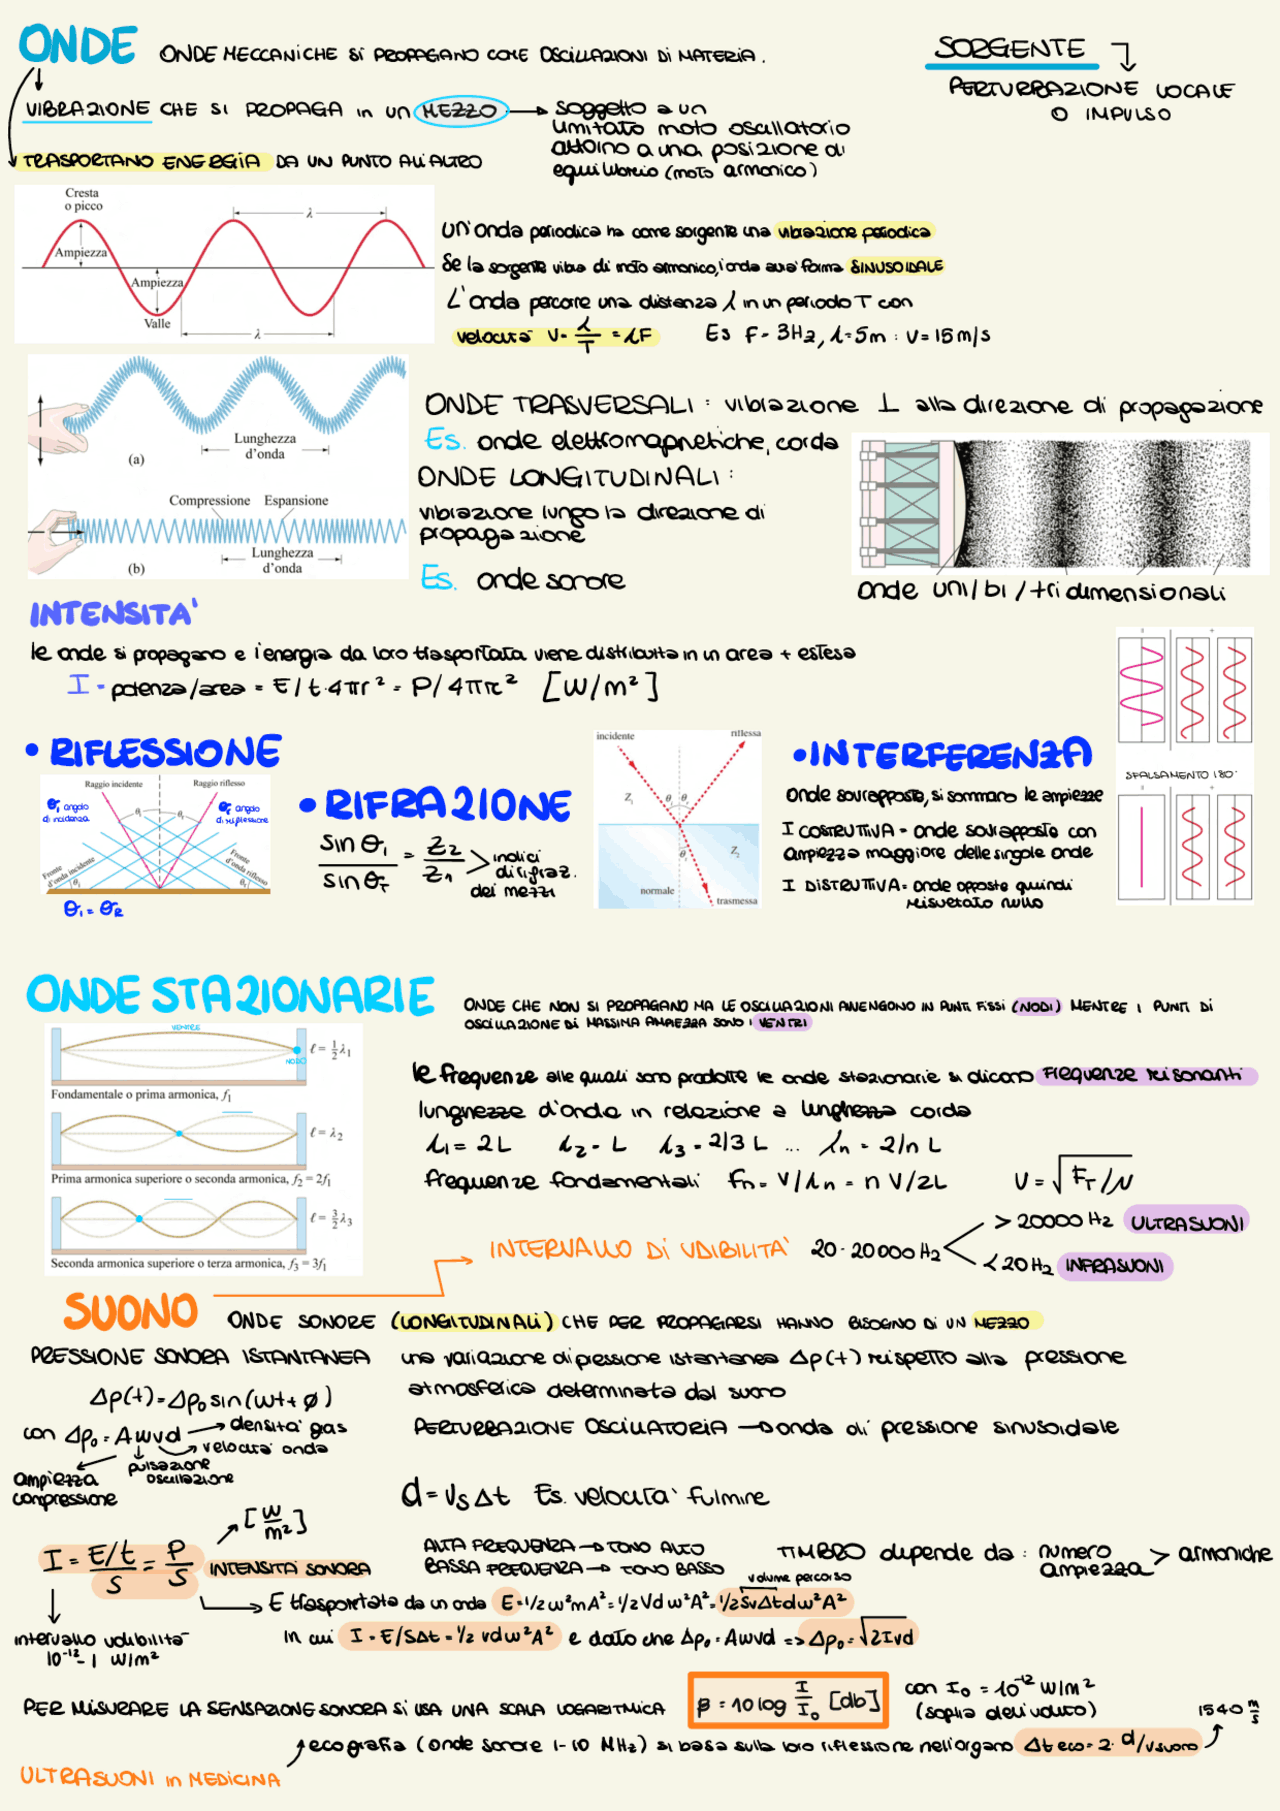 ONDE ONDE MECCANICHE SI PROPAGANO COME OSCILLAZIONI DI MATERIA.
SORGENTE
PERTURBAZIONE LOCALE
O IMPULSO
VIBRAZIONE CHE SI PROPAGA in un MEZZO → soggetto a un
limitato moto oscillatorio
attorno a una posizione di
equilibrio (moto armonico)
TRASPORTANO ENERGIA DA UN PUNTO ALL'ALTRO
Cresta
o picco
λ
Ampiezza
Ampiezza
Valle
λ
un'onda periodica ha come sorgente una vibrazione periodica
Se la sorgente vibra di moto armonico, l'onda avrà forma SINUSOIDALE
L'onda percorre una distanza λ in un periodo T con
velocità v = λ/T = λF Es F = 3Hz, λ = 5m : v = 15 m/s
(a)
Lunghezza
d'onda
Compressione Espansione
Lunghezza
d'onda
(b)
ONDE TRASVERSALI : vibrazione ⊥ alla direzione di propagazione
Es. onde elettromagnetiche, corda
ONDE LONGITUDINALI :
vibrazione lungo la direzione di
propagazione
Es. onde sonore
onde uni/bi/tridimensionali
INTENSITA'
le onde si propagano e l'energia da loro trasportata viene distribuita in un area + estesa
I = potenza/area = E/t·4πr² = P/4πr² [W/m²]
• RIFLESSIONE
Raggio incidente Raggio riflesso
θi angolo
di incidenza
θr angolo
di riflessione
Fronte
d'onda incidente
Fronte
d'onda riflesso
θi = θR
• RIFRAZIONE
sin θi / sin θr = Z2/Z1 > indici
di rifraz.
dei mezzi
incidente riflessa
Z1
Z2
normale
trasmessa
• INTERFERENZA
Onde sovrapposte, si sommano le ampiezze
I COSTRUTTIVA = onde sovrapposte con
ampiezza maggiore delle singole onde
I DISTRUTTIVA = onde opposte quindi
risultato nullo
= +
SFALSAMENTO 180°
= +
ONDE STAZIONARIE
ONDE CHE NON SI PROPAGANO MA LE OSCILLAZIONI AVVENGONO IN PUNTI FISSI (NODI) MENTRE I PUNTI DI
OSCILLAZIONE DI MASSIMA AMPIEZZA SONO I VENTRI
VENTRE
NODO
ℓ = ½ λ1
Fondamentale o prima armonica, f1
ℓ = λ2
Prima armonica superiore o seconda armonica, f2 = 2f1
ℓ = 3/2 λ3
Seconda armonica superiore o terza armonica, f3 = 3f1
le frequenze alle quali sono prodotte le onde stazionarie si dicono frequenze risonanti
lunghezze d'onda in relazione a lunghezza corda
λ1 = 2L λ2 = L λ3 = 2/3 L ... λn = 2/n L
frequenze fondamentali Fn = V/λn = n V/2L v = √FT/μ
INTERVALLO DI UDIBILITA' 20-20000 Hz
> 20000 Hz ULTRASUONI
< 20Hz INFRASUONI
SUONO ONDE SONORE (LONGITUDINALI) CHE PER PROPAGARSI HANNO BISOGNO DI UN MEZZO
PRESSIONE SONORA ISTANTANEA una variazione di pressione istantanea Δp(t) rispetto alla pressione
atmosferica determinata dal suono
Δp(t) = Δp0 sin(ωt + ϕ)
con Δp0 = Aωvd → densità gas
velocità onda
pulsazione
oscillazione
ampiezza
compressione
PERTURBAZIONE OSCILLATORIA → onda di pressione sinusoidale
d = vs Δt Es. velocità fulmine
I = E/t / S = P/S [W/m²] INTENSITA SONORA
ALTA FREQUENZA → TONO ALTO
BASSA FREQUENZA → TONO BASSO
TIMBRO dipende da : numero
ampiezza > armoniche
volume percorso
E trasportata da un onda E = 1/2 ω²mA² = 1/2 Vdω²A² = 1/2 SvΔtdω²A²
intervallo udibilità
10⁻¹² - 1 W/m²
in cui I = E/SΔt = 1/2 vdω²A² e dato che Δp0 = Aωvd => Δp0 = √2Ivd
PER MISURARE LA SENSAZIONE SONORA SI USA UNA SCALA LOGARITMICA β = 10 log I/I0 [db]
con I0 = 10⁻¹² W/m²
(soglia dell'udito)
1540 m/s
ecografia (onde sonore 1-10 MHz) si basa sulla loro riflessione nell'organo Δt eco = 2· d/vsuono
ULTRASUONI in MEDICINA